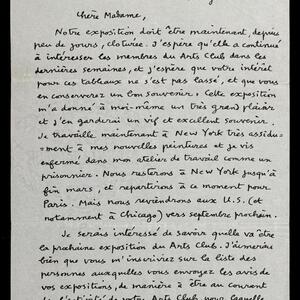 Chère Madame,
Notre exposition doit être maintenant, depuis
peu de jours, cloturée. J'espère qu'elle a continué
à intéresser les membres du Arts Club dans les
dernières semaines, et j'espère que votre intérêt
pour ces tableaux ne s'est pas lassé, et que vous
en conserverez un bon souvenir. Cette exposition
m'a donné à moi-même un très grand plaisir
et j'en garderai un vif et excellent souvenir.
Je travaille maintenant à New York très assidu-
ment à mes nouvelles peintures et je vis
enfermé dans mon atelier de travail comme un
prisonnier. Nous resterons à New York jusqu'à
fin mars, et repartirons à ce moment pour
Paris. Mais nous reviendrons aux U.S. (et
notamment à Chicago) vers septembre prochain.
Je serais intéressé de savoir quelle va être
la prochaine exposition du Arts Club. J'aimerais
bien que vous m'inscriviez sur la liste des
personnes auxquelles vous envoyez les avis de
vos expositions, de manière à être au courant
de l'activité de votre Arts Club pour laquelle